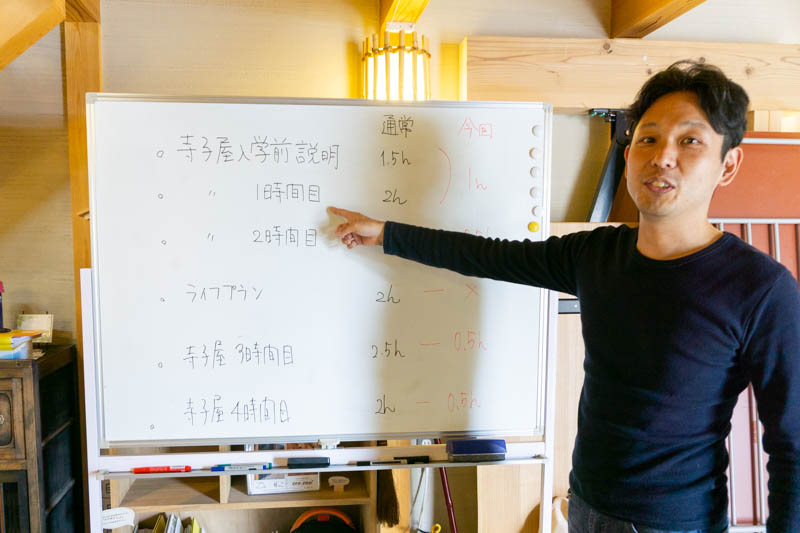 通常 今回
。寺子屋入学前説明 1.5h
1h
。〃 1時間目 2h
。〃 2時間目
。ライフプラン 2h ― ×
。寺子屋 3時間目 2.5h ― 0.5h
。寺子屋 4時間目 2h ― 0.5h